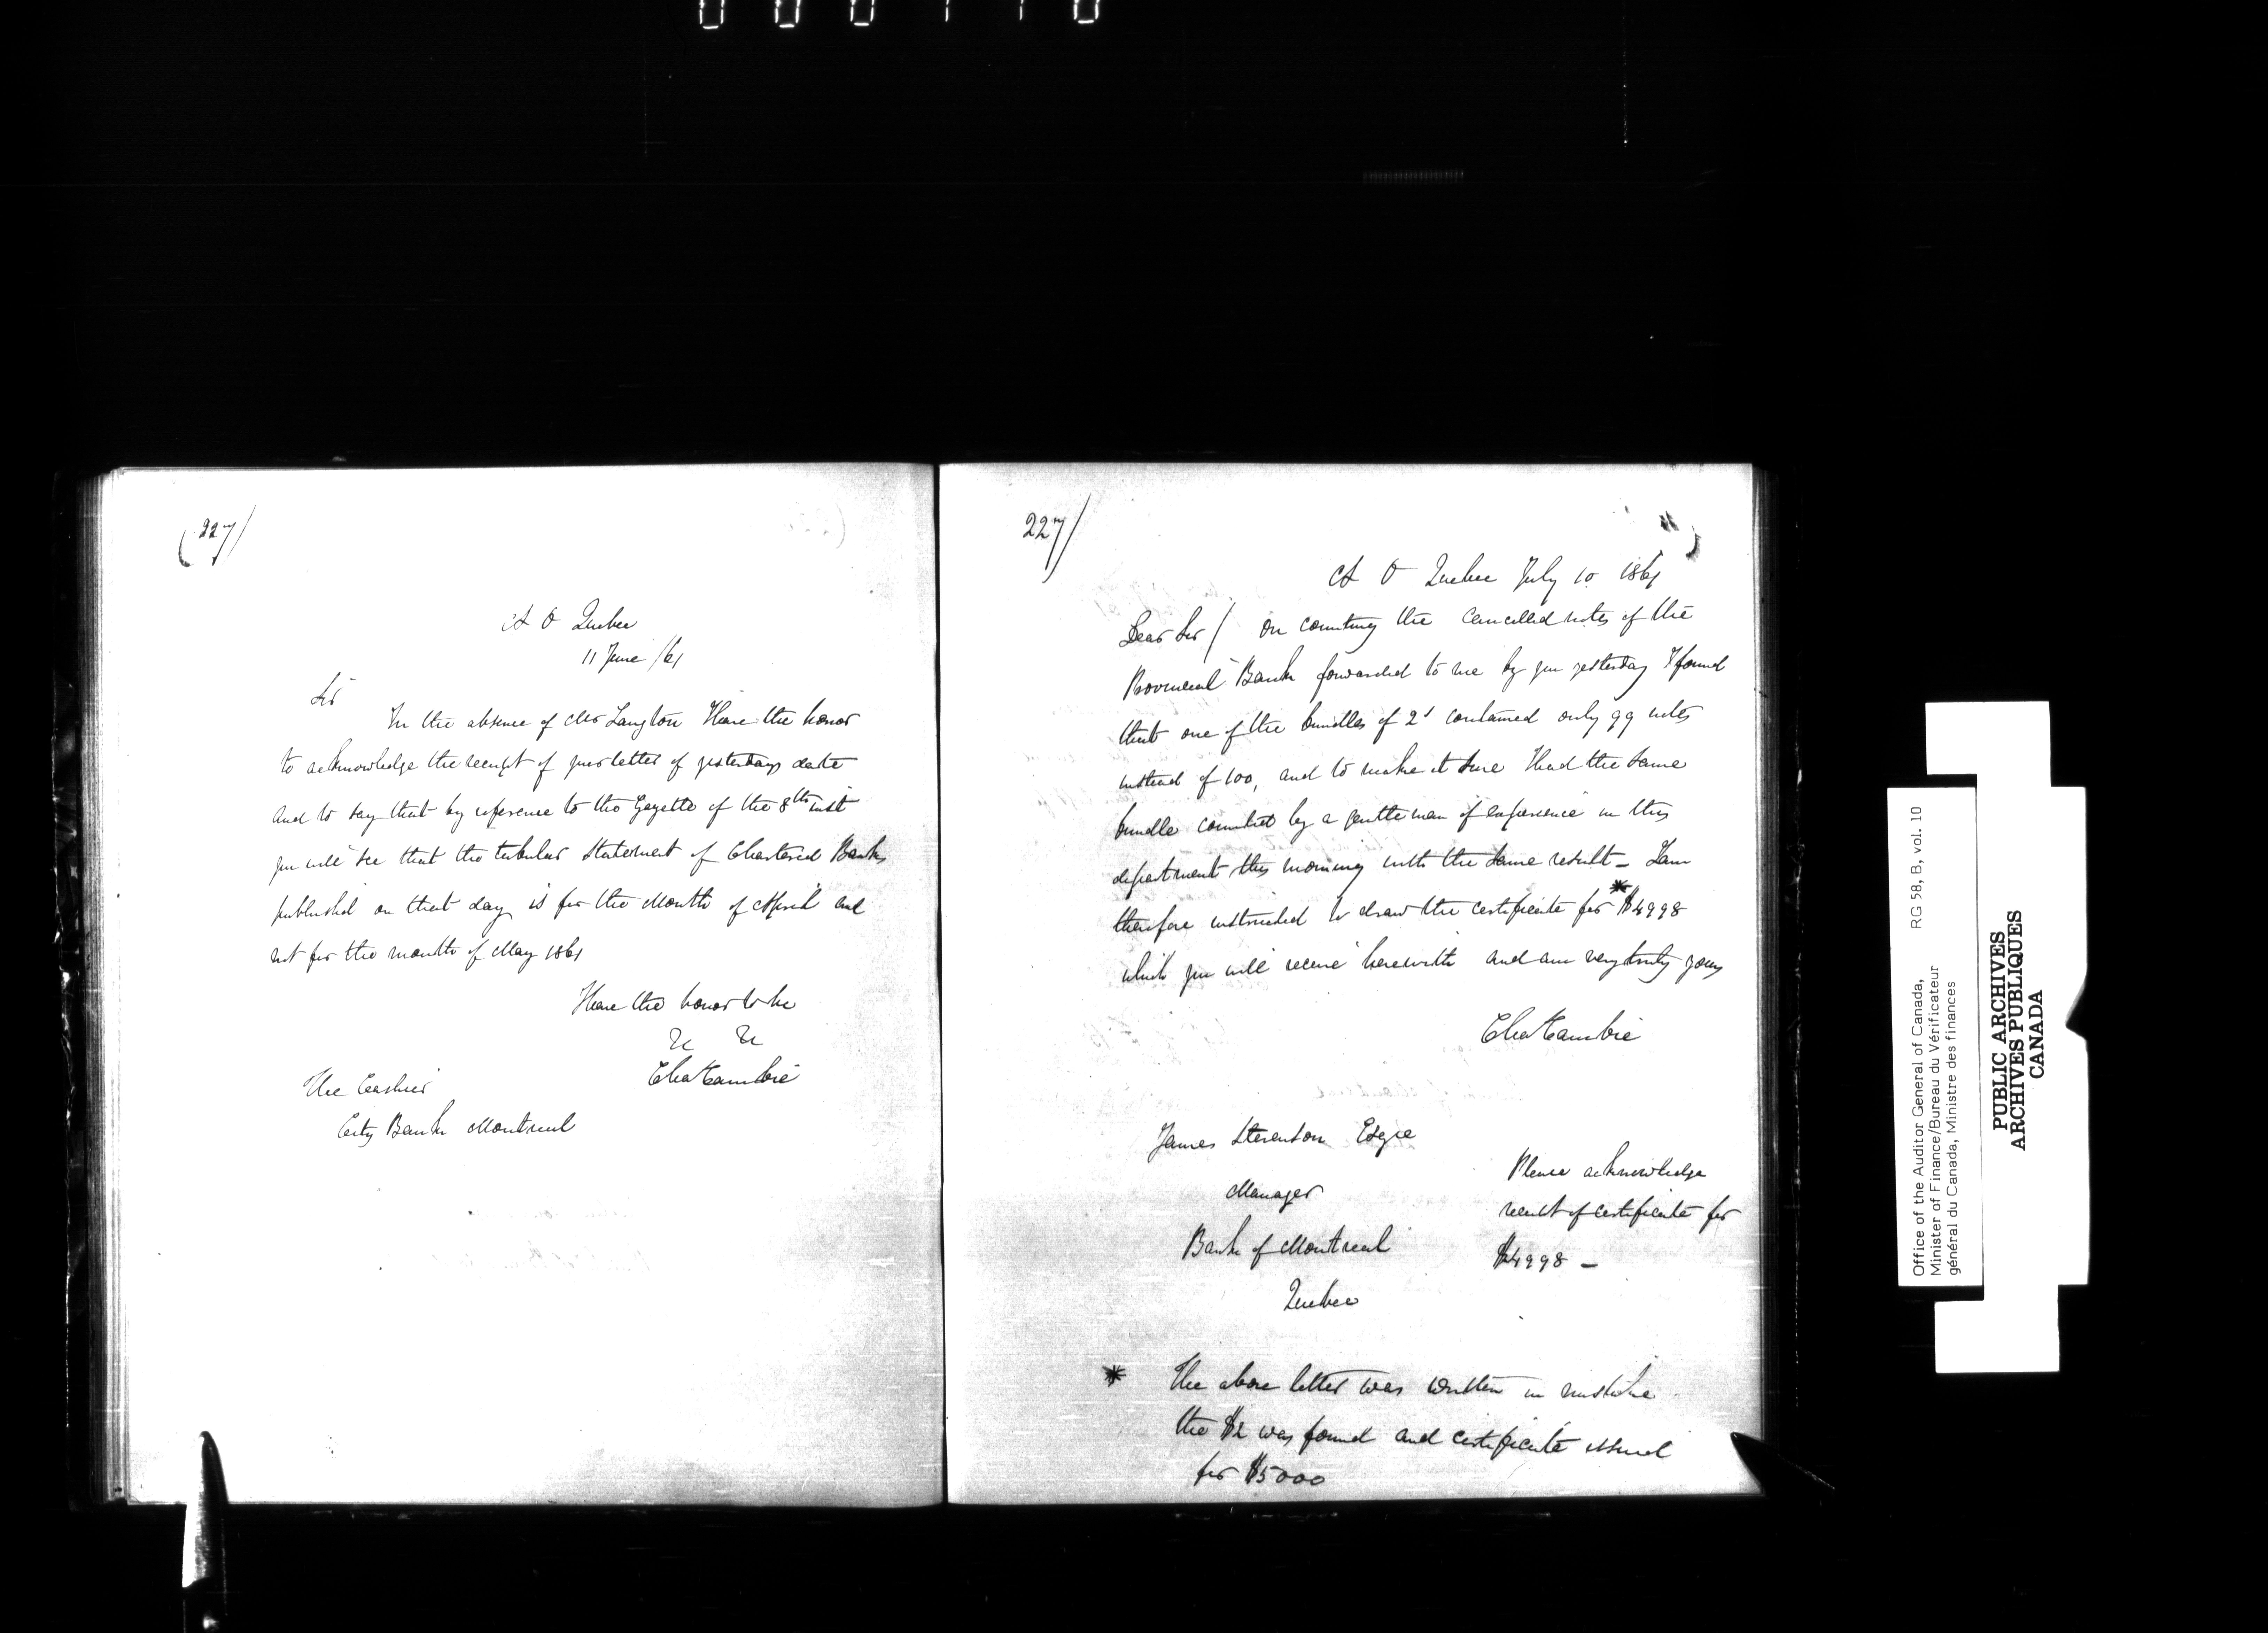 (227/
A O Quebec
11 June /61
Sir
In the absence of Mr Langton I have the honor
to acknowledge the receipt of your letter of yesterdays date
and to say that by reference to the Gazette of the 8th inst
you will see that the tabular statement of Chartered Banks
published on that day is for the Month of April and
not for the month of May 1861
I have the honor to be
&c &c
Cha Cambie
The Cashier
City Bank Montreal
227/
A O Quebec July 10 1861
Dear Sir / On counting the cancelled notes of the
Provincial Bank forwarded to me by you yesterday I found
that one of the bundles of 2s contained only 99 notes
instead of 100, and to make it sure I had the same
bundle counted by a gentleman of experience in this
department this morning with the same result - I am
therefore instructed to draw the certificate for *$4998
which you will receive herewith and am very truly yours
Cha Cambie
James Stevenson Esqre
Manager
Bank of Montreal
Quebec
Please acknowledge
receipt of certificate for
$4998 -
* The above letter was written in mistake
the $2 was found and certificate issued
for $5000
Office of the Auditor General of Canada, RG 58, B, vol. 10
Minister of Finance/Bureau du Vérificateur
général du Canada, Ministre des finances
PUBLIC ARCHIVES
ARCHIVES PUBLIQUES
CANADA